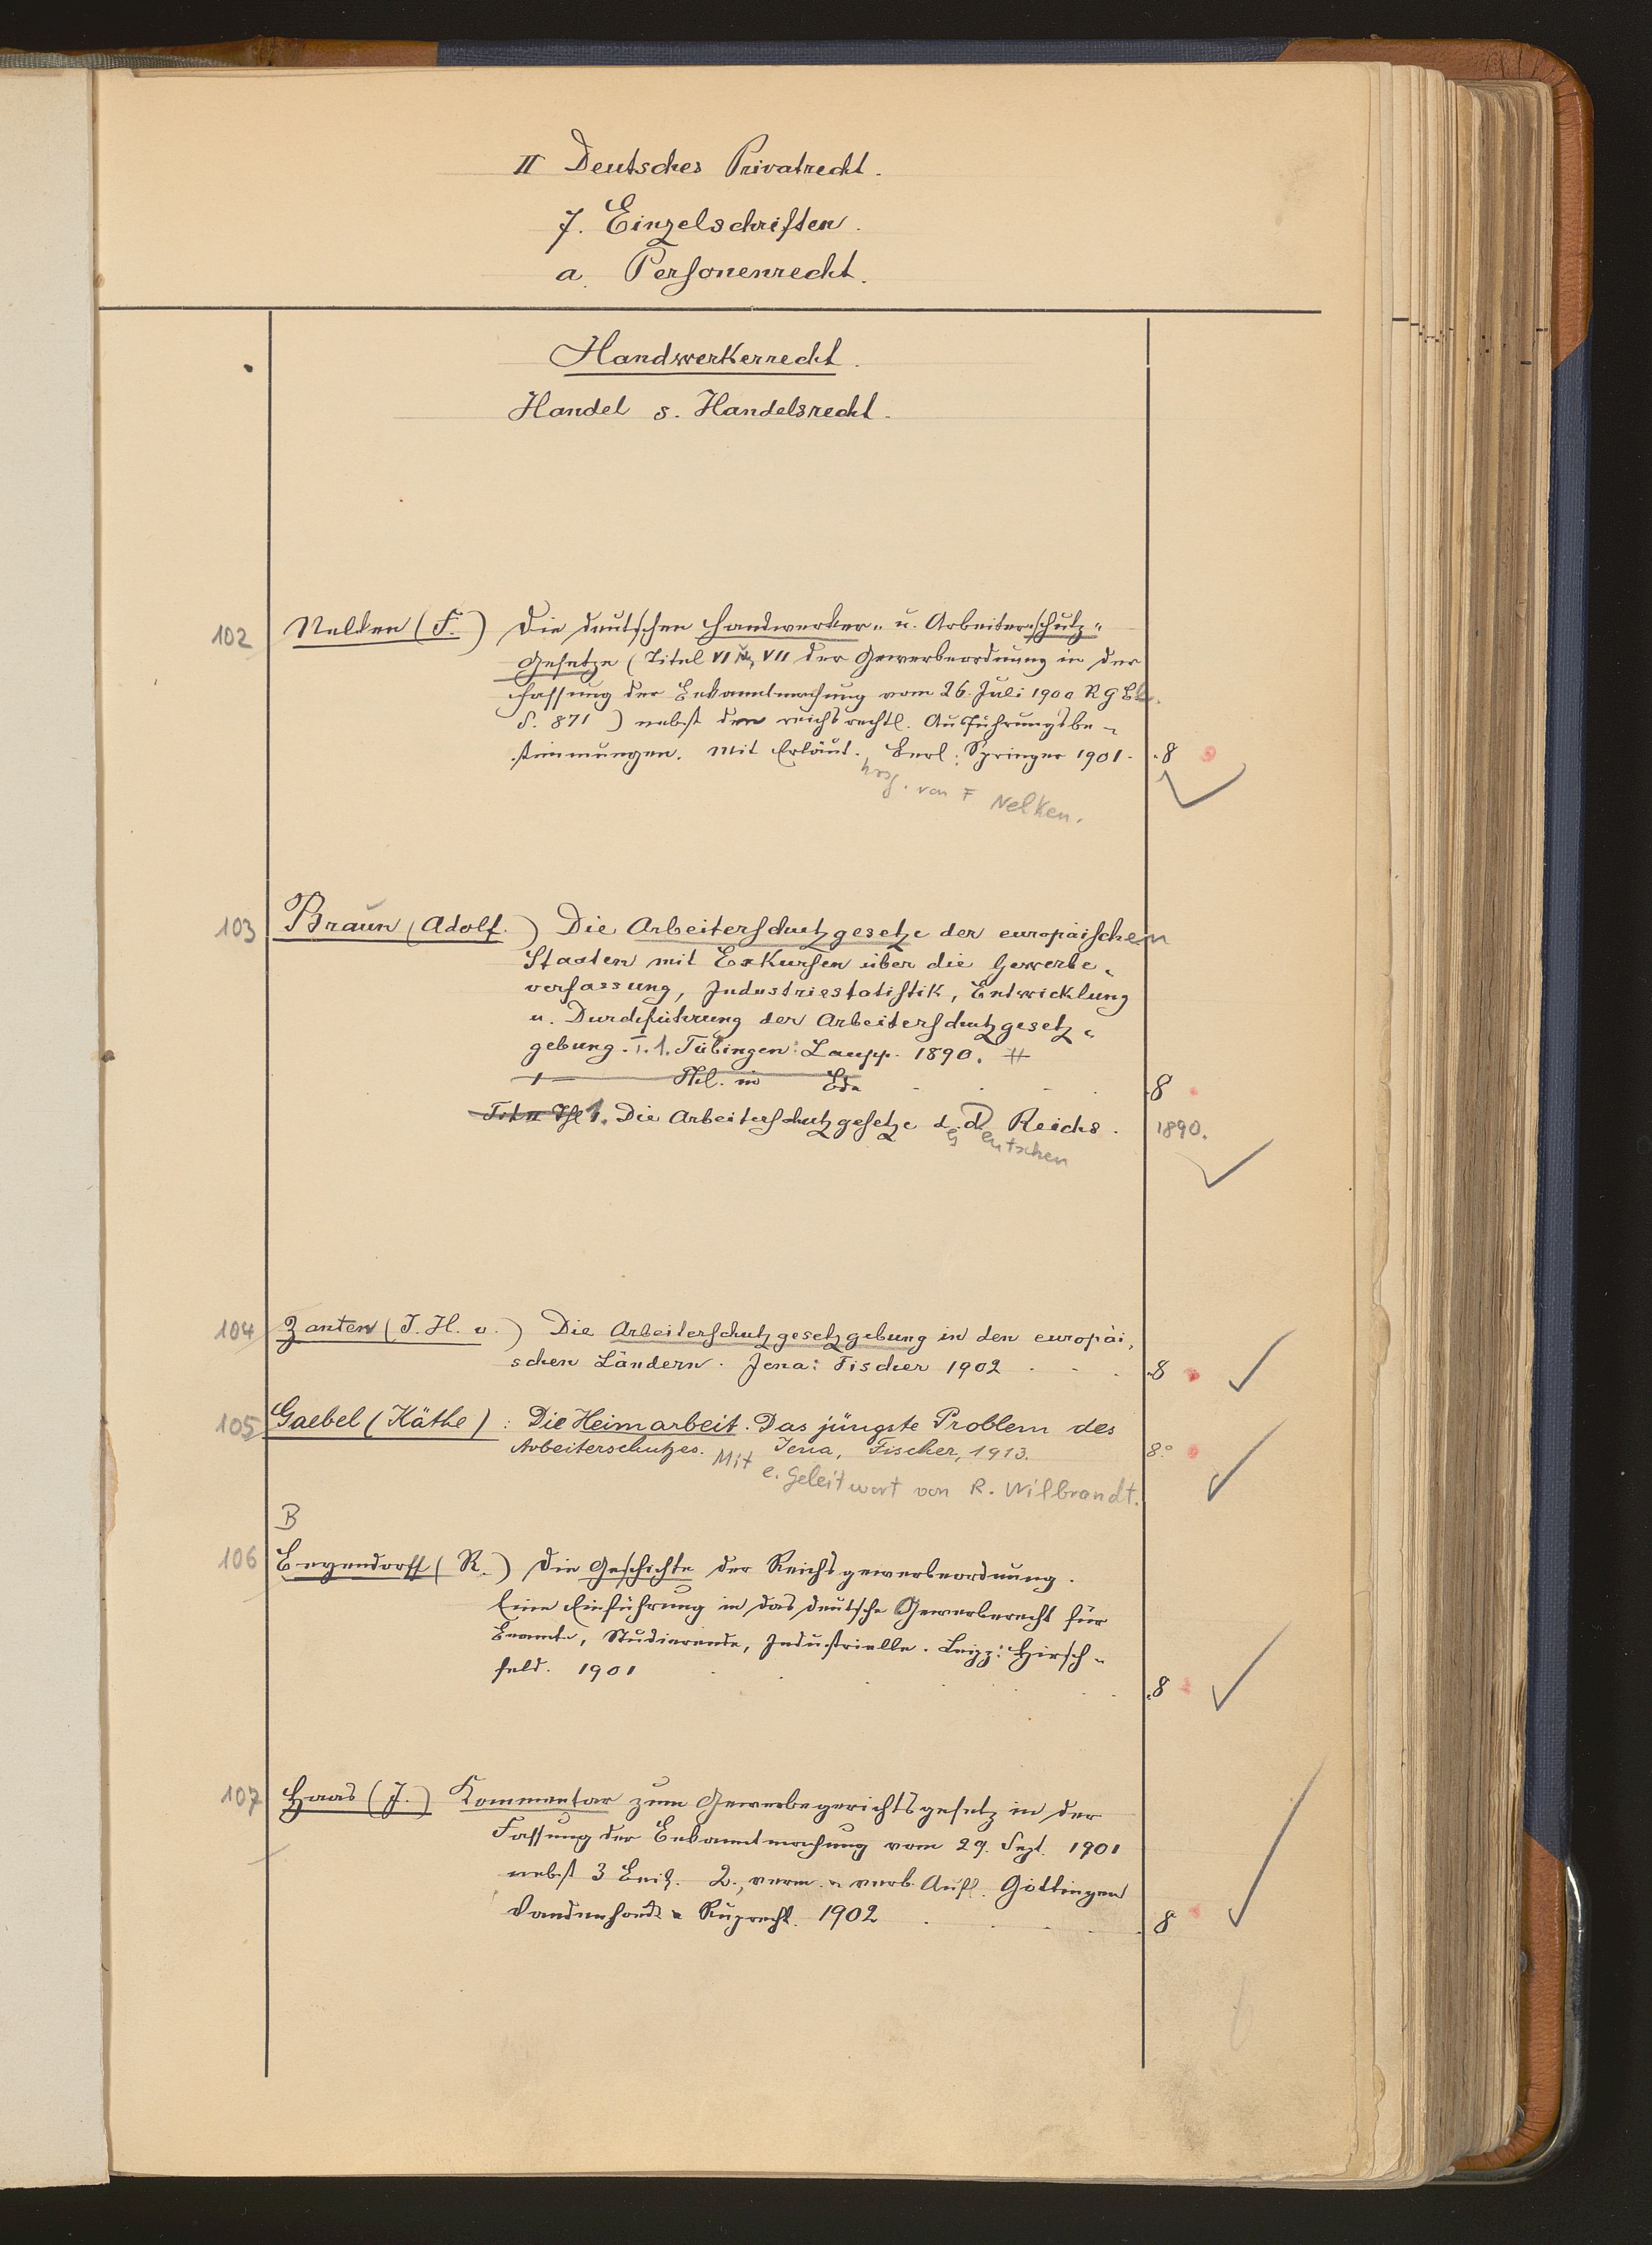 II Deutsches Privatrecht.
7. Einzelschriften.
a. Personenrecht.
Handwerkerrecht.
Handel s. Handelsrecht.
102 Nelken (F.) Die deutschen Handwerker- u. Arbeiterschutz-
Gesetze (Titel VI VII der Gewerbeordnung in der
Fassung der Bekanntmachung vom 26. Juli 1900 RGBl.
S. 871) nebst den reichsrechtl. Ausführungsbe-
stimmungen. Mit Erläut. Berl: Springer 1901. 8
hrsg. von F Nelken.
103 Braun (Adolf.) Die Arbeiterschutzgesetze der europäischen
Staaten mit Exkursen über die Gewerbe-
verfassung, Industriestatistik, Entwicklung
u. Durchführung der Arbeiterschutzgesetz-
gebung. T. 1. Tübingen: Laupp. 1890.
8
1. Die Arbeiterschutzgesetze d. d. Reichs. 1890.
es eutschen
104 Zanten (J. H. v.) Die Arbeiterschutzgesetzgebung in den europäi-
schen Ländern. Jena: Fischer 1902 8
105 Gaebel (Käthe): Die Heimarbeit. Das jüngste Problem des
Arbeiterschutzes. Jena, Fischer, 1913. 8°
Mit e. Geleitwort von R. Wilbrandt.
B
106 Begendorff (R.) Die Geschichte der Reichsgewerbeordnung.
Eine Einführung in das deutsche Gewerberecht für
Beamte, Studierende, Industrielle. Leipz: Hirsch-
feld. 1901 8
107 Haas (J.) Kommentar zum Gewerbegerichtsgesetz in der
Fassung der Bekanntmachung vom 29. Sept. 1901
nebst 3 Beil. 2., verm. u verb. Aufl. Göttingen
Vandenhoeck u Ruprecht. 1902 8